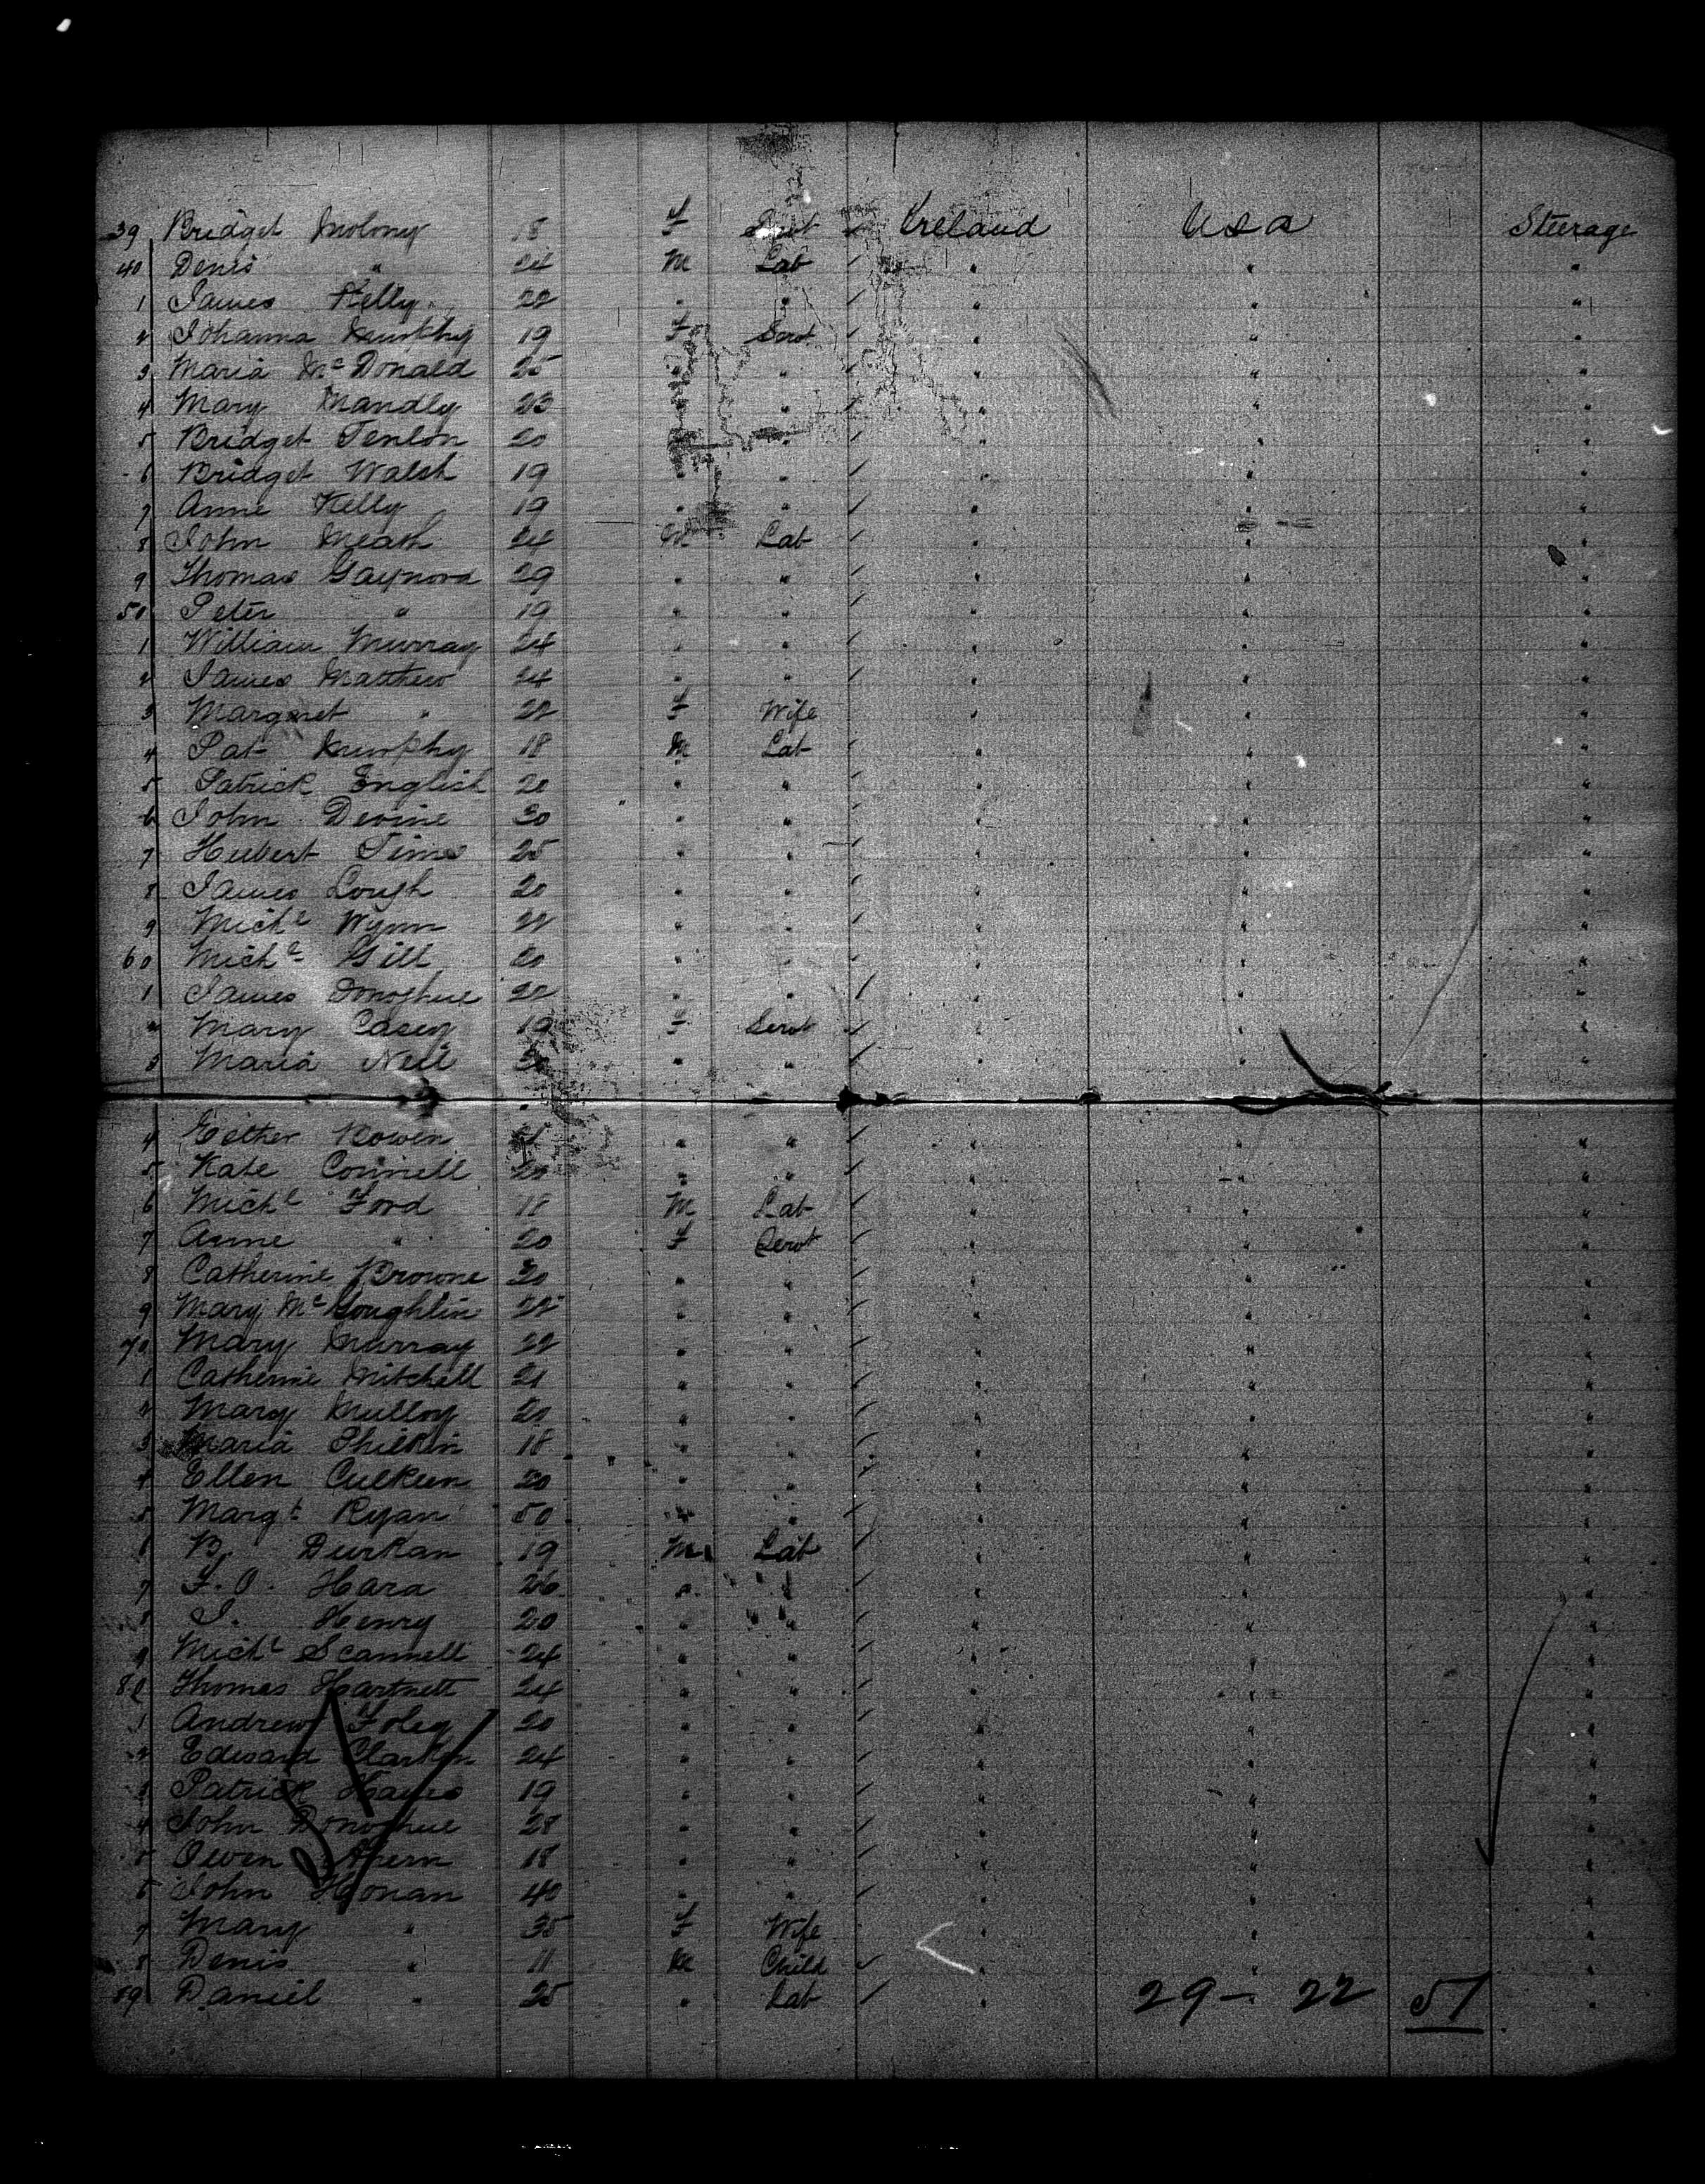 39 Bridget Molony 18 F Servt Ireland U S a Steerage
40 Denis " 24 M Lab " " "
1 James Kelly 22 " " " " "
2 Johanna Murphy 19 F Servt " " "
3 Maria McDonald 25 " " " " "
4 Mary Mandly 23 " " " " "
5 Bridget Fenlon 20 " " " " "
6 Bridget Walsh 19 " " " " "
7 Anne Kelly 19 " " " " "
8 John Meath 24 M Lab " " "
9 Thomas Gaynord 29 " " " " "
50 Peter " 19 " " " " "
1 William Murray 24 " " " " "
2 James Matthew 24 " " " " "
3 Margaret " 22 F Wife " " "
4 Pat Murphy 18 M Lab " " "
5 Patrick English 20 " " " " "
6 John Devine 30 " " " " "
7 Hubert Tims 25 " " " " "
8 James Lough 20 " " " " "
9 Michl Wynn 22 " " " " "
60 Michl Gill 20 " " " " "
1 James Donoghue 22 " " " " "
2 Mary Casey 19 F Servt " " "
3 Maria Neil " " " " "
4 Esther Bowen " " " " "
5 Kate Connell 20 " " " " "
6 Michl Ford 18 M Lab " " "
7 Anne " 20 F Servt " " "
8 Catherine Browne 20 " " " " "
9 Mary McLoughlin 22 " " " " "
70 Mary Murray 22 " " " " "
1 Catherine Mitchell 21 " " " " "
2 Mary Mulloy 20 " " " " "
3 Maria 18 " " " " "
4 Ellen Culkeen 20 " " " " "
5 Margt Ryan 50 " " " " "
6 B. Durkan 19 M Lab " " "
7 F. O. Hara 26 " " " " "
8 J. Henry 20 " " " " "
9 Michl Scannell 24 " " " " "
80 Thomas Hartnett 24 " " " " "
1 Andrew Foley 20 " " " " "
2 Edward 24 " " " " "
3 Patrick Hayes 19 " " " " "
4 John Donoghue 28 " " " " "
5 Owen Ahern 18 " " " " "
6 John Honan 40 " " " " "
7 Mary " 35 F Wife " " "
8 Denis " 11 M Child " " "
89 Daniel " 25 " Lab " "
29 - 22 51